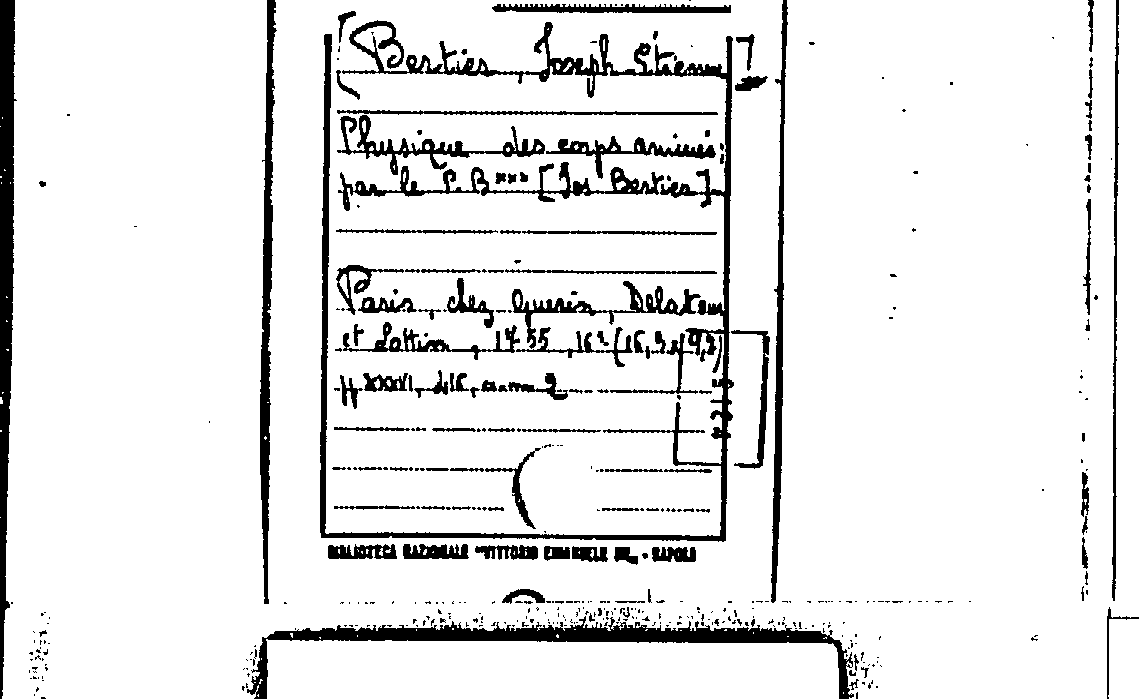 [Bertier, Joseph Étienne]
Physique des corps animés;
par le P. B*** [Jos Bertier].
Paris, chez Guerin, Delatour
et Lottin, 1755, 16º (16,5x9,5)
pp XXXVI,
BIBLIOTECA NAZIONALE "VITTORIO EMANUELE III" - NAPOLI